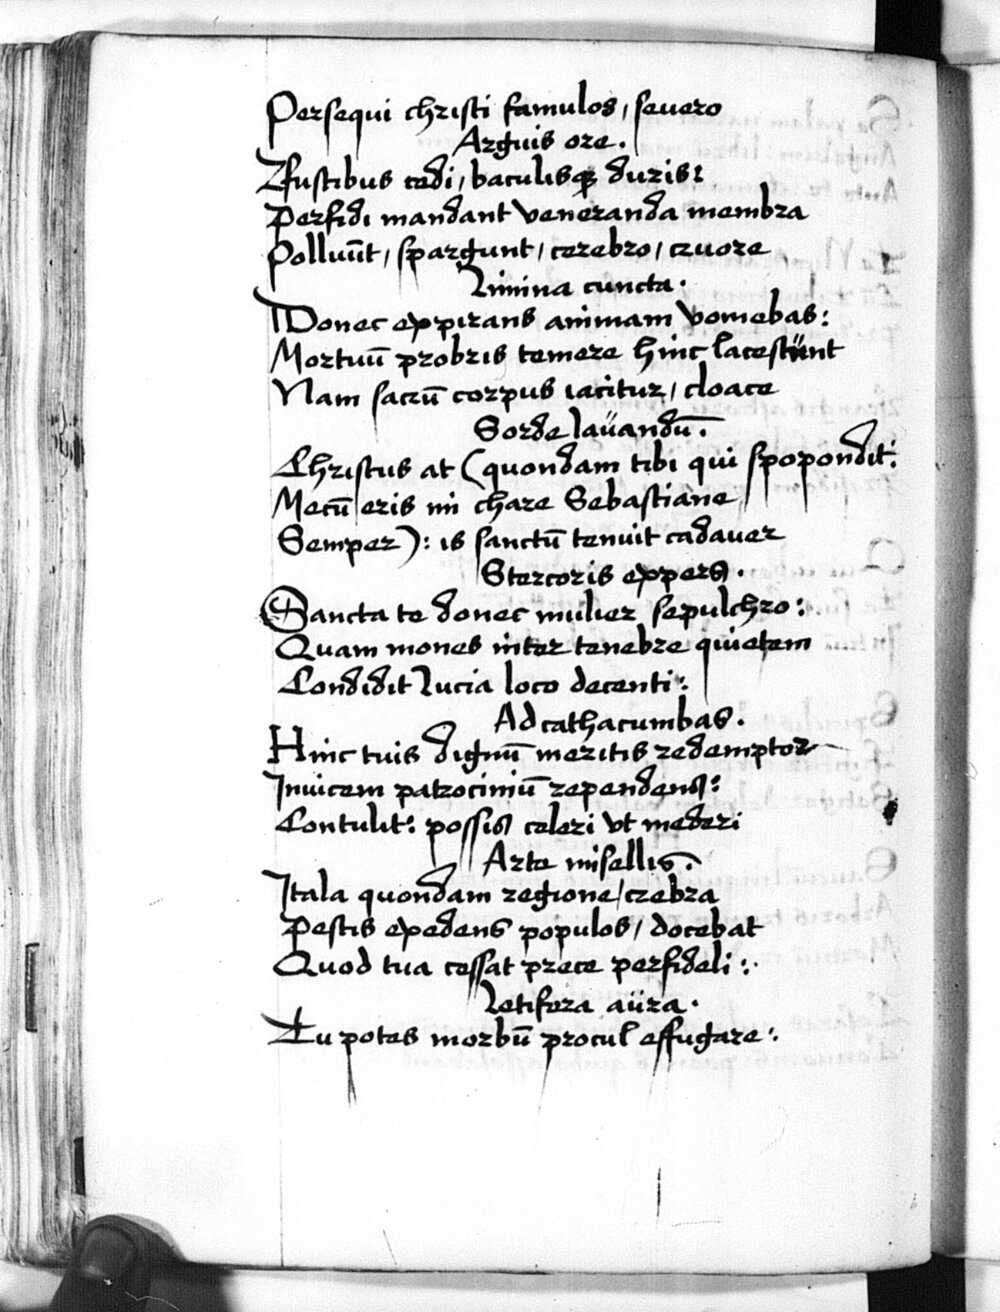 Persequi christi famulos, seuero
Arguis ore.
Fustibus cedi, baculisque duris:
Perfidi mandant veneranda membra
Polluūt, spargunt, cerebro, cruore
Limina cuncta.
Donec expirans animam vomebas:
Mortuū probris temere hinc lacessunt
Nam sacrū corpus iacitur, cloace
Sorde lauandū.
Christus at (quondam tibi qui spopondit:
Mecū eris mi chare Sebastiane
Semper): is sanctū tenuit cadauer
Stercoris expers.
Sancta te donec mulier sepulchro:
Quam mones inter tenebre quietem
Condidit Lucia loco decenti:
Ad cathacumbas.
Hinc tuis dignū meritis redemptor
Inuicem patrociniū rependens:
Contulit: possis celeri vt mederi
Arte misellis.
Itala quondam regione, crebra
Pestis exedens populos, docebat
Quod tua cessat prece perfideli:
Letifera aura.
Tu potes morbū procul effugare: